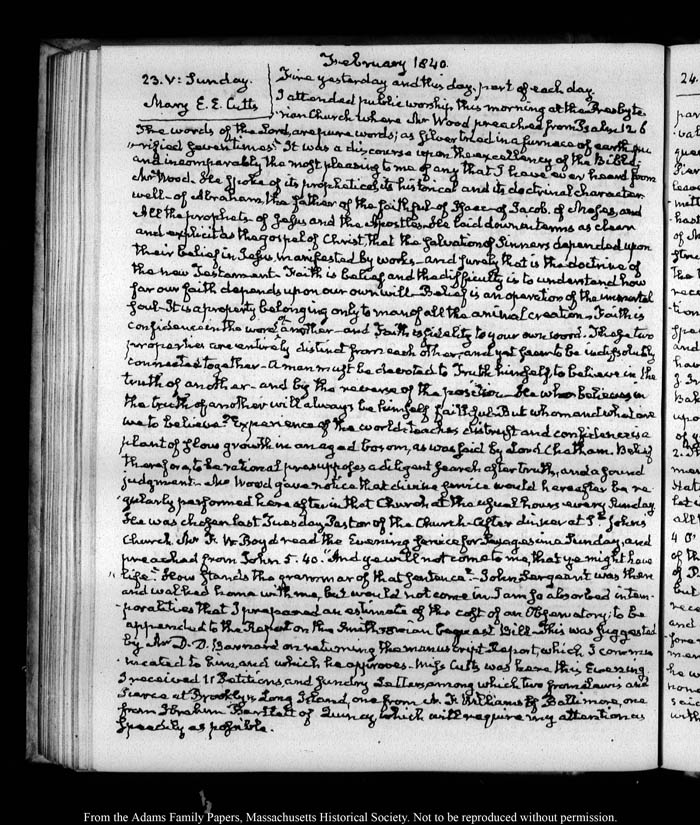 February 1840.
23. V: Sunday. Fine yesterday and this day. part of each day.
Mary E. E. Cutts I attended public worship this morning at the Presbyte-
rian Church where Mr Wood preached from Psalm 12. 6
The words of the Lord, are pure words; as silver tried in a furnace of earth pu-
rified seven times. It was a discourse upon the excellency of the Bible;
and incomparably the most pleasing to me of any that I have ever heard from
Mr Wood. He spoke of its prophetical, its historical and its doctrinal character
well – of Abraham, the father of the faithful – of Isaac – of Jacob, of Moses, and
all the prophets, of Jesus and the Apostles. He laid down in terms as clear
and explicit as the gospel of Christ, that the salvation of sinners depended upon
their belief in Jesus, manifested by works – and surely that is the doctrine of
the new Testament – Faith is belief and the difficulty is to understand how
far our faith depends upon our own will – Belief is an operation of the immortal
soul – It is a property, belonging only to man of all the animal creation. Faith is
confidence in the word of another – and Faith is fidelity to your own word. These two
properties are entirely distinct from each other, and yet seem to be indissolubly
connected together – A man must be devoted to Truth himself, to believe in the
truth of another – and by the reverse of the position – He who believes in
the truth of another will always be himself faithful. But whom and what are
we to believe? Experience of the world teaches distrust and confidence is a
plant of slow growth in an aged bosom, as was said by Lord Chatham. Belief
therefore, to be rational presupposes a diligent search after truth, and a sound
judgment – Mr Wood gave notice that divine service would hereafter be re-
gularly performed hereafter in that Church at the usual hours every Sunday
He was chosen last Tuesday Pastor of the Church – After dinner at St. Johns
Church Mr F. W. Boyd read the Evening service for Sexagesima Sunday, and
preached from John 5. 40. "And ye will not come to me, that ye might have
life." How stands the grammar of that sentence? – John Sergeant was there
and walked home with me, but would not come in I am so absorbed in tem-
poralities that I prepared an estimate of the cost of an Observatory; to be
appended to the Report on the Smithsonian bequest Bill – This was suggested
by Mr D. D. Barnard on returning the manuscript Report, which I commu-
nicated to him, and which he approves. Miss Cutts was here this Evening.
I received 11 Petitions and sundry Letters, among which two from Lewis
Pearce at Brooklyn Long Island, one from N. F. Williams of Baltimore, one
from Ibrahim Bartlett of Quincy, which will require my attention as
speedily as possible.
24.
From the Adams Family Papers, Massachusetts Historical Society. Not to be reproduced without permission.